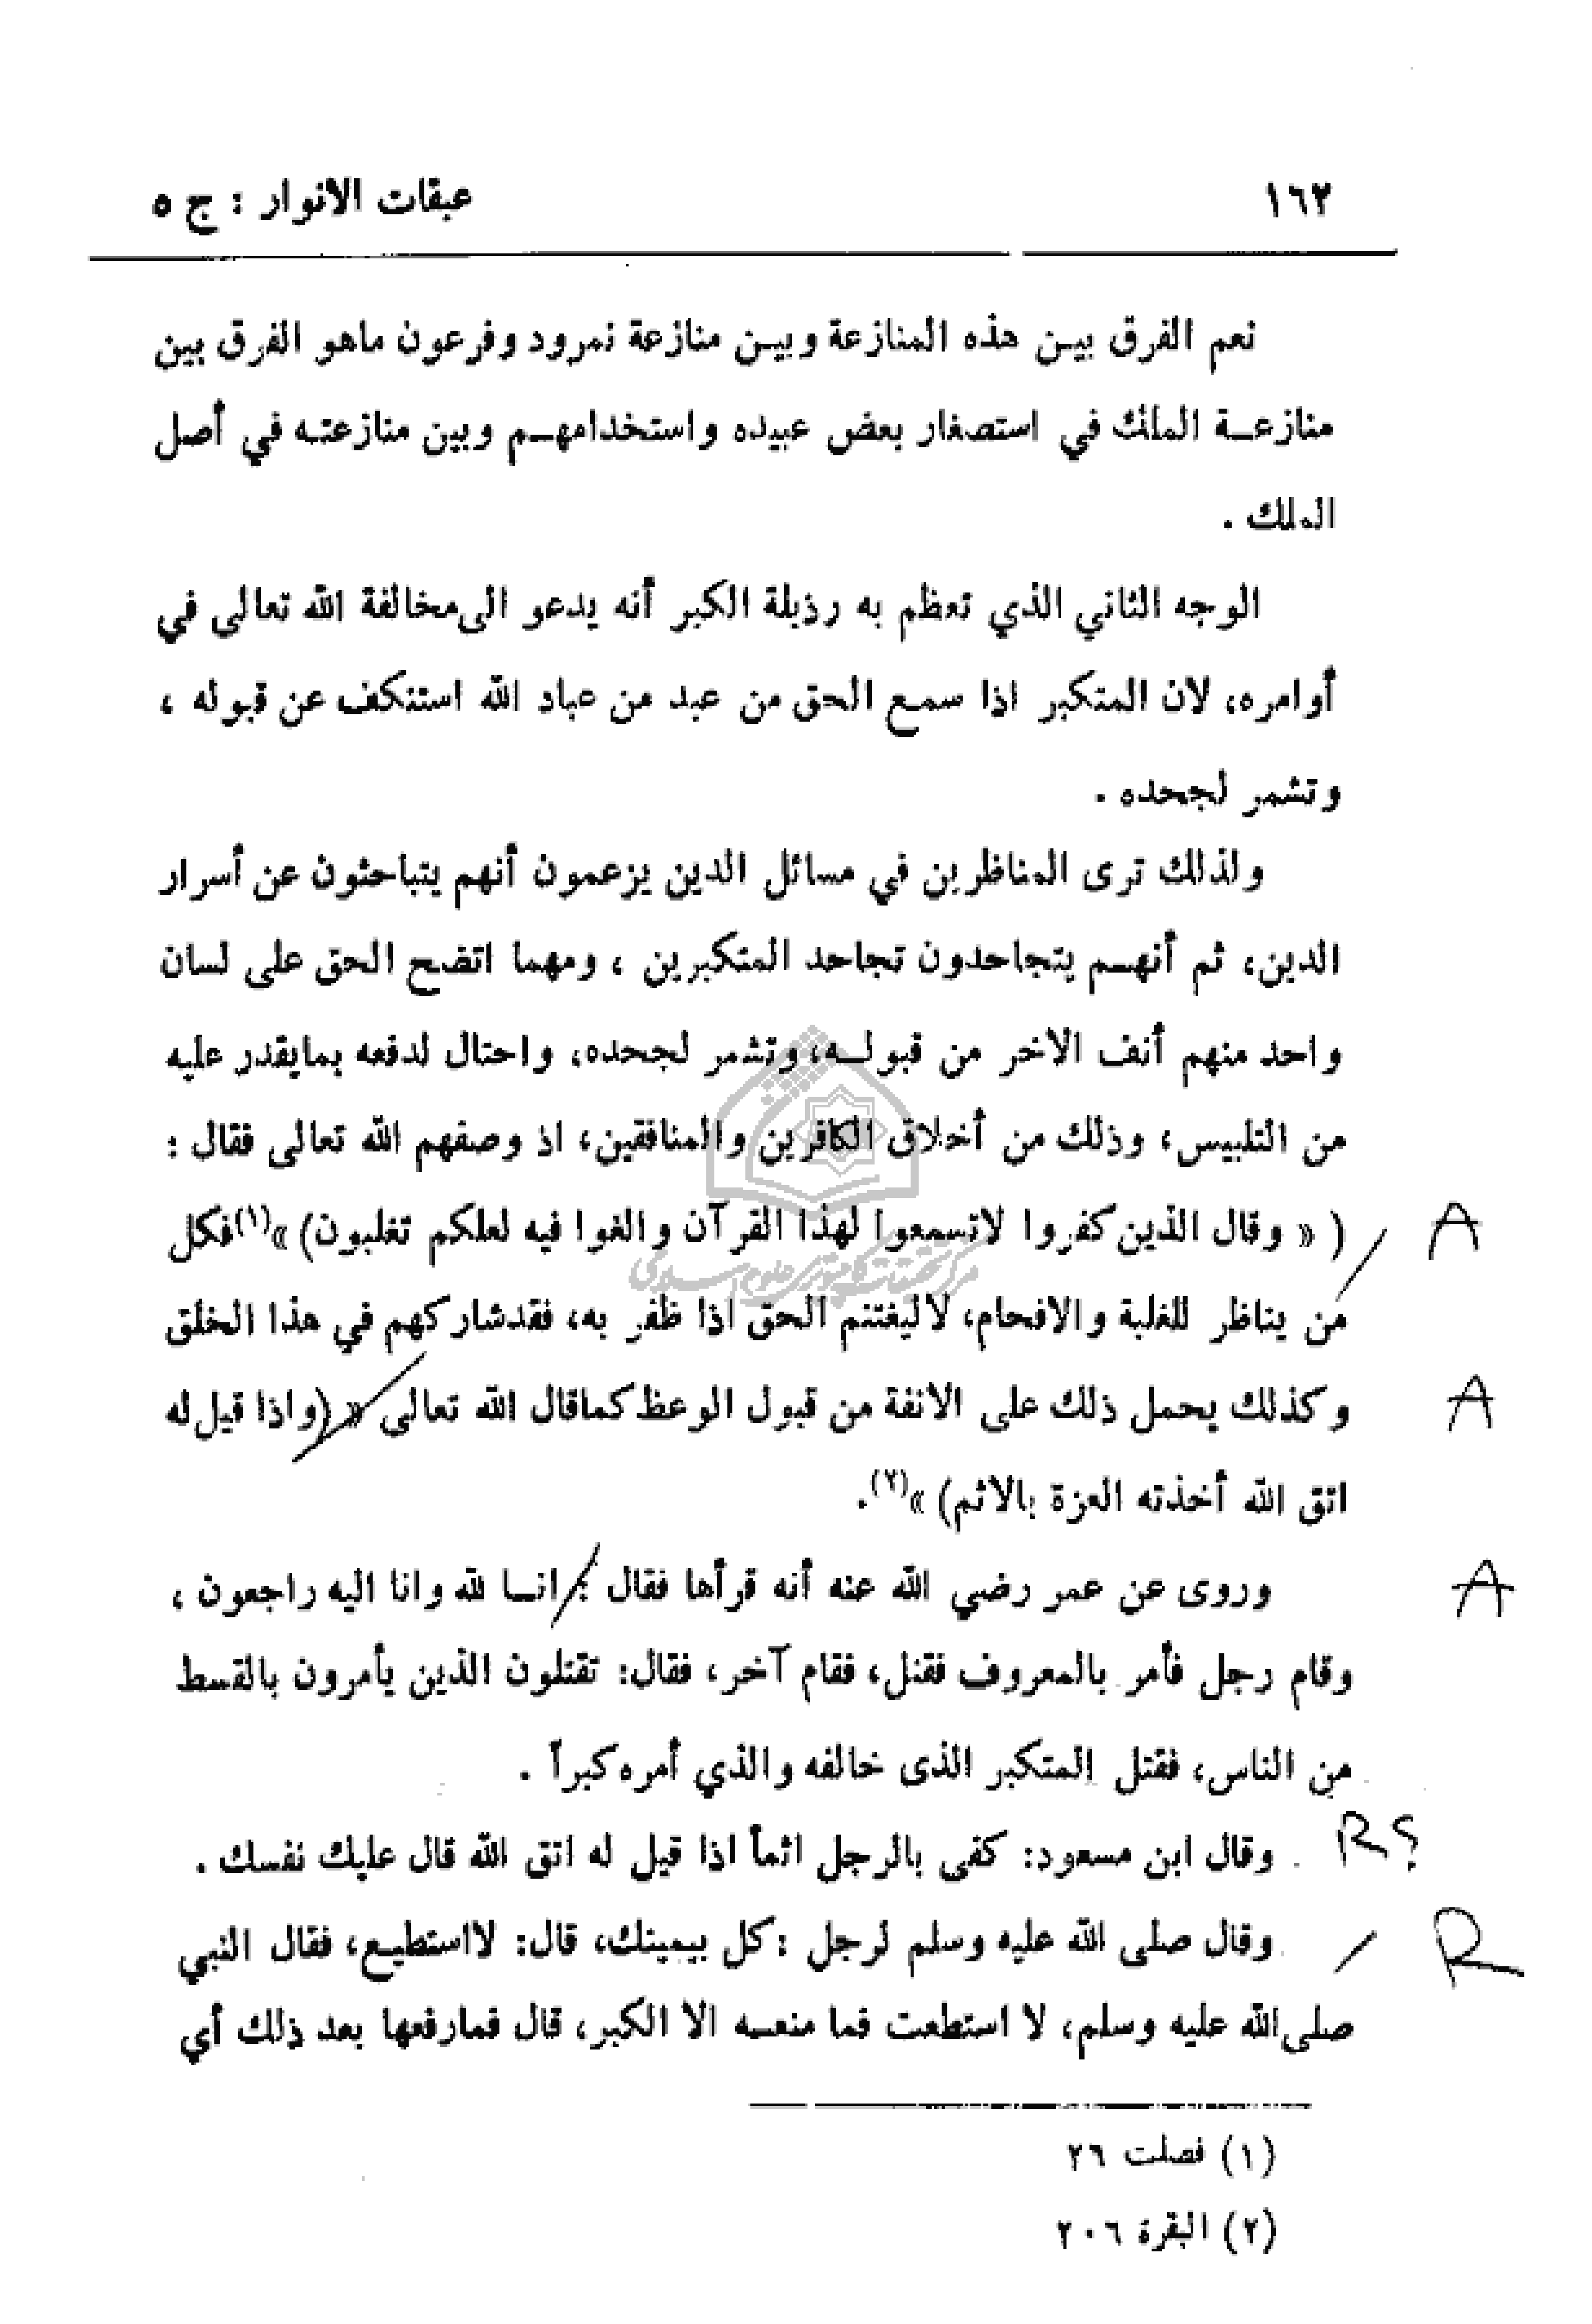 ١٦٢
عبقات الانوار : ج ٥
نعم الفرق بيـن هذه المنازعة وبيـن منازعة نمرود وفرعون ماهو الفرق بين
منازعـة الملك في استصغار بعض عبيده واستخدامهـم وبين منازعتـه في أصل
الملك .
الوجه الثاني الذي تعظم به رذيلة الكبر أنه يدعو الى مخالفة الله تعالى في
أوامره، لان المتكبر اذا سمـع الحق من عبد من عباد الله استنكف عن قبوله ،
وتشمر لجحده .
ولذلك ترى المناظرين في مسائل الدين يزعمون أنهم يتباحثون عن أسرار
الدين، ثم أنهـم يتجاحدون تجاحد المتكبرين ، ومهما اتضح الحق على لسان
واحد منهم أنف الاخر من قبولـه، وتشمر لجحده، واحتال لدفعه بمايقدر عليه
من التلبيس، وذلك من أخلاق الكافرين والمنافقين، اذ وصفهم الله تعالى فقال :
( « وقال الذين كفروا لاتسمعوا لهذا القرآن والغوا فيه لعلكم تغلبون) »(١) فكل A
من يناظر للغلبة والافحام، لاليغتنم الحق اذا ظفر به، فقدشاركهم في هذا الخلق
وكذلك يحمل ذلك على الانفة من قبول الوعظ كماقال الله تعالى « (واذا قيل له A
اتق الله أخذته العزة بالاثم) »(٢).
وروى عن عمر رضي الله عنه أنه قرأها فقال : انـا لله وانا اليه راجعون ، A
وقام رجل فأمر بالمعروف فقتل، فقام آخر، فقال: تقتلون الذين يأمرون بالقسط
من الناس، فقتل المتكبر الذى خالفه والذي أمره كبراً .
وقال ابن مسعود: كفى بالرجل اثماً اذا قيل له اتق الله قال عليك نفسك . R؟
وقال صلى الله عليه وسلم لرجل :كل بيمينك، قال: لااستطيـع، فقال النبي R
صلى الله عليه وسلم، لا استطعت فما منعـه الا الكبر، قال فمارفعها بعد ذلك أي
(١) فصلت ٢٦
(٢) البقرة ٢٠٦